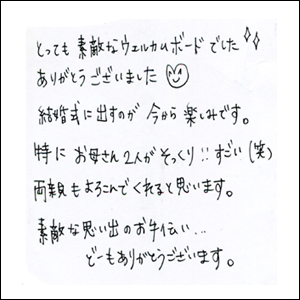 とっても素敵なウェルカムボードでした
ありがとうございました
結婚式に出すのが今から楽しみです。
特にお母さん2人がそっくり!!すごい(笑)
両親もよろこんでくれると思います。
素敵な思い出のお手伝い...
どーもありがとうございます。